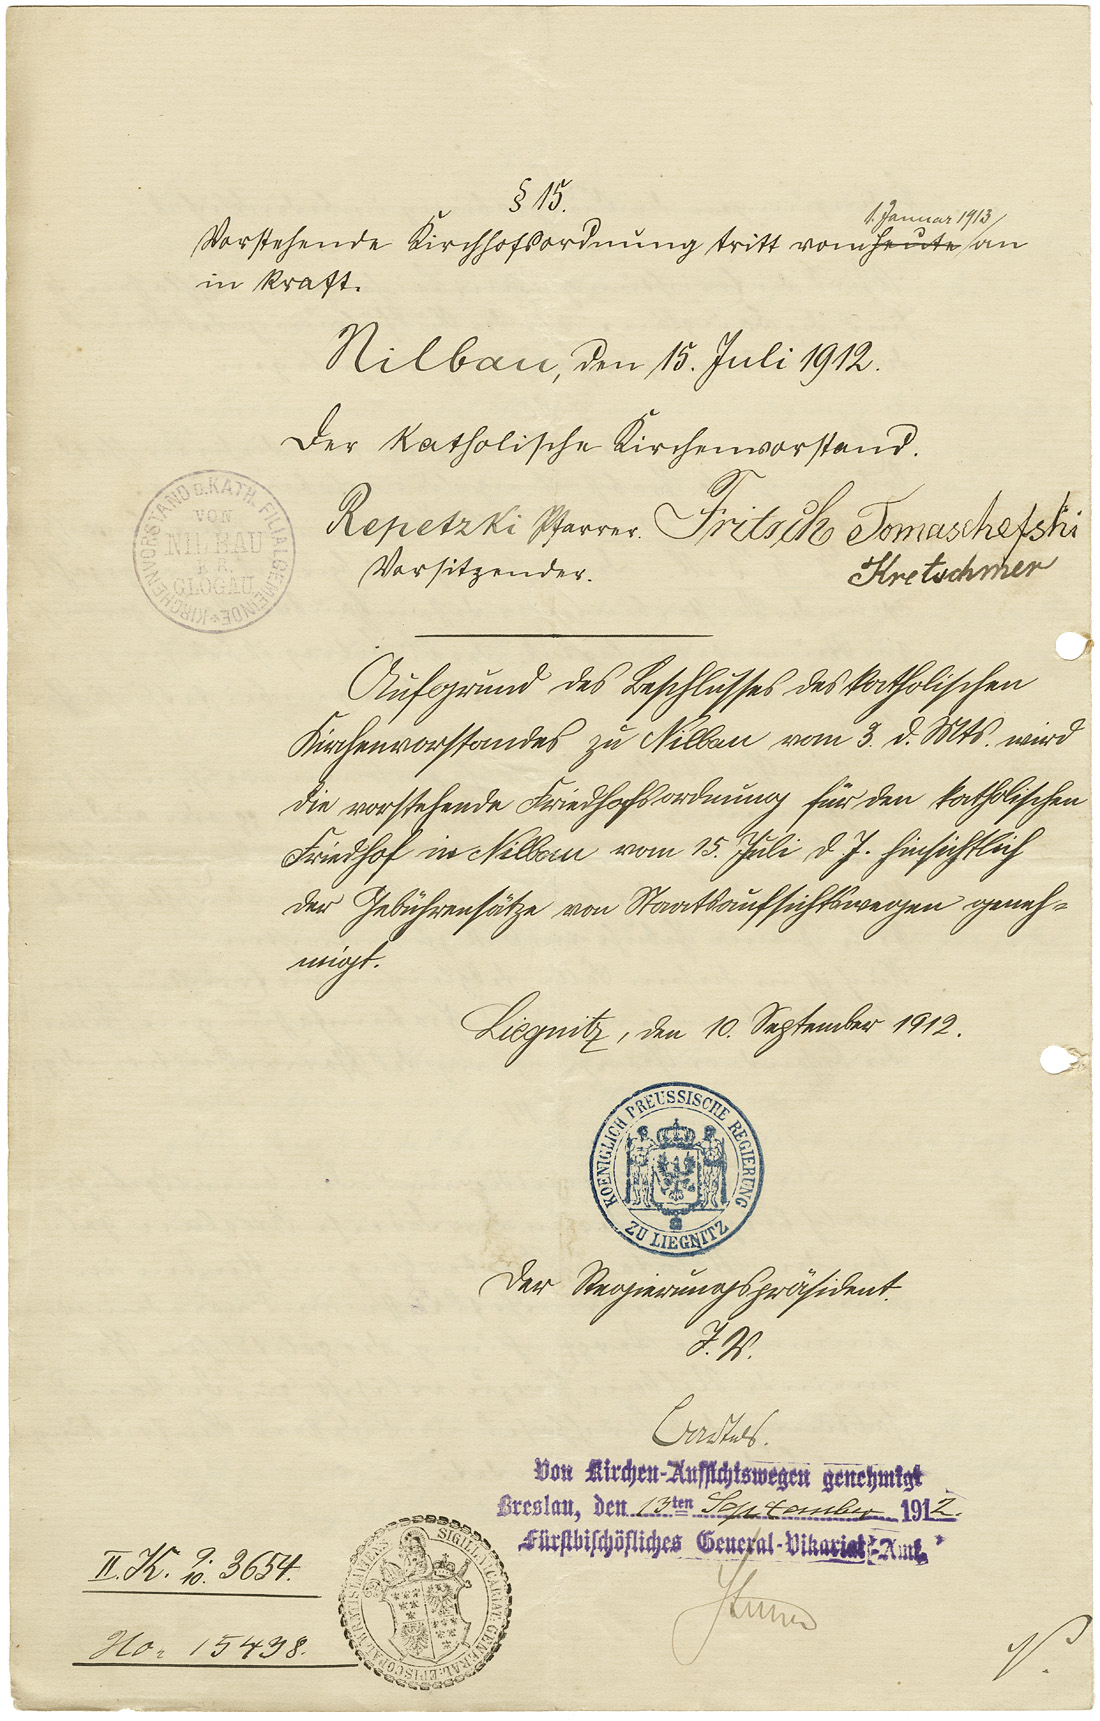 § 15.
1. Januar 1913
Vorstehende Kirchhofsordnung tritt vom heute an
in Kraft.
Nilbau, den 15. Juli 1912.
Der katholische Kirchenvorstand.
Repetzki Pfarrer. Fritsch Tomaschefski
Vorsitzender. Kretschmer
KIRCHENVORSTAND D. KATH. FILIALGEMEINDE
VON
NILBAU
K. A.
GLOGAU
Aufgrund des Beschlusses des katholischen
Kirchenvorstandes zu Nilbau vom 3. d. Mts. wird
die vorstehende Friedhofsordnung für den katholischen
Friedhof in Nilbau vom 15. Juli d. J. hinsichtlich
der Gebührensätze von Staatsaufsichtswegen geneh=
migt.
Liegnitz, den 10. September 1912.
KOENIGLICH PREUSSISCHE REGIERUNG
ZU LIEGNITZ
Der Regierungspräsident.
J. V.
Von Kirchen-Aufsichtswegen genehmigt
Breslau, den 13ten September 1912.
Fürstbischöfliches General-Vikariat-Amt.
II. K. 9/10. 3654.
No. 15438.
SIGILL. VICARIAT. GENERAL. EPISCOPAL. WRATISLAVIENS